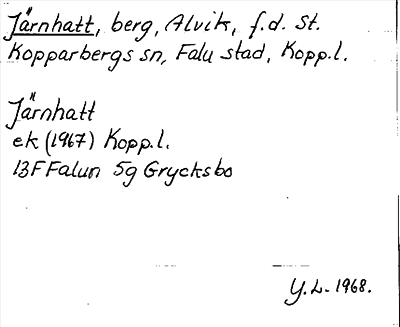 Järnhatt, berg, Alvik, f.d. St.
Kopparbergs sn, Falu stad, Kopp.l.
Järnhatt
ek (1967) Kopp.l.
13F Falun 5g Grycksbo
Y.L. 1968.